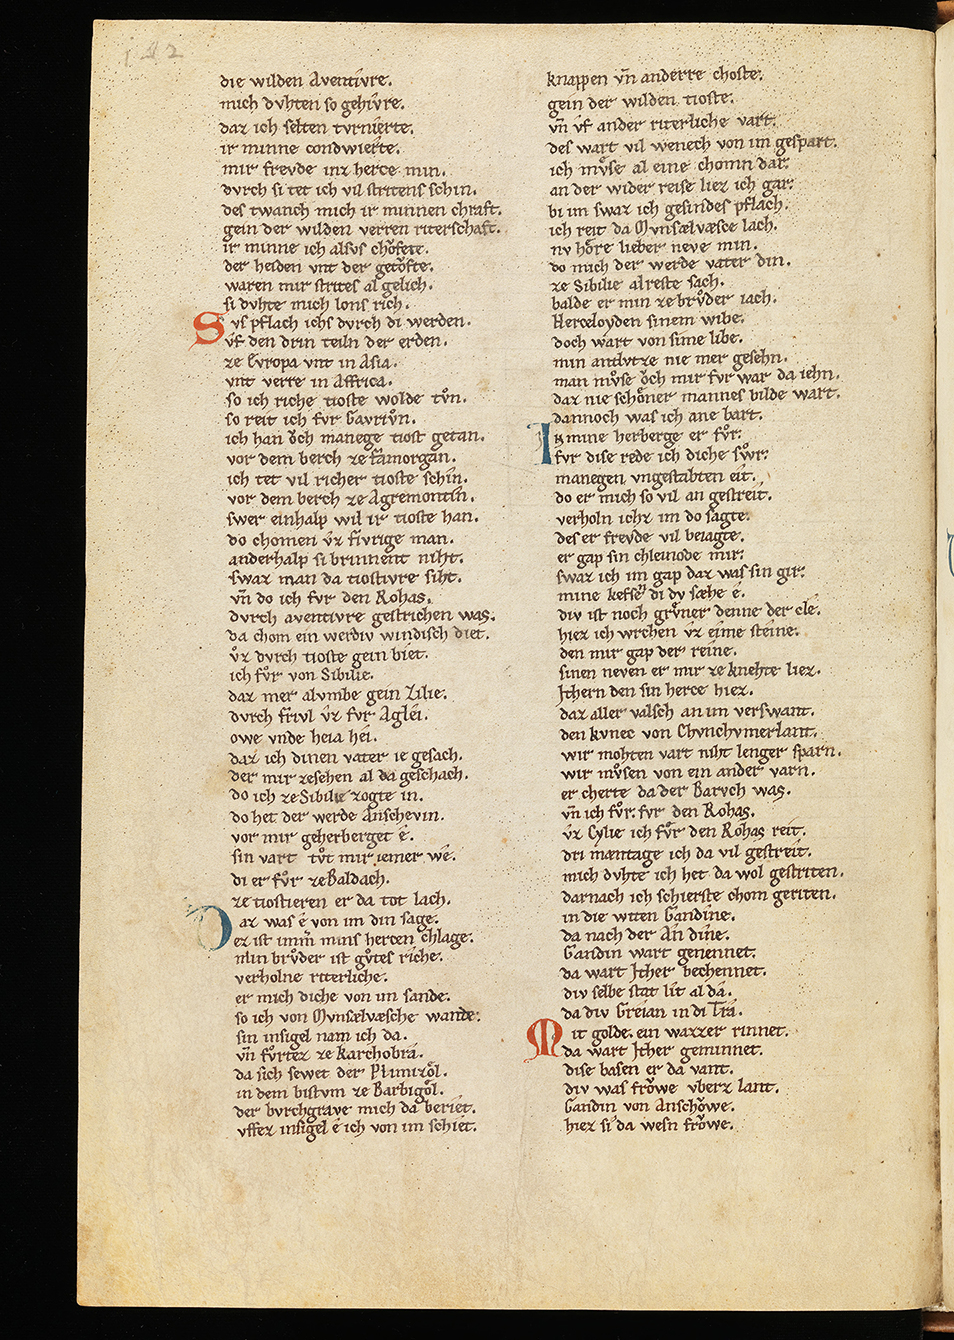 142
die wilden Aventivre.
mich dvhten so gehivre.
daz ich selten tvrnierte.
ir minne condwierte.
mir frevde inz herce min.
dvrch si tet ich vil stritens schin.
des twanch mich ir minnen chraft.
gein der wilden verren riterschaft.
ir minne ich alsvs chofte.
der heiden vnt der getofte.
waren mir strites al gelich.
si dvhte mich lons rich.
Svs pflach ichs dvrch di werden.
vf den drin teiln der erden.
ze Evropa vnt in Asia.
vnt verre in Affrica.
so ich riche tioste wolde tvͦn.
so reit ich fvr Gavrivͦn.
ich han oͮch manege tiost getan.
vor dem berch ze famorgan.
ich tet vil richer tioste schin.
vor dem berch ze Agremontin.
swer einhalp wil ir tioste han.
do chomen vz fivrige man.
anderhalp si brinnent niht.
swaz man da tiostivre siht.
vn̄ do ich fvr den Rohas.
dvrch aventivre gestrichen was.
da chom ein werdiv windisch diet.
vͦz dvrch tioste gein biet.
ich fvͦr von Sibilie.
daz mer alvmbe gein Zilie.
dvrch frivl vz fvr Aglei.
owe vnde heia hei.
daz ich dinen vater ie gesach.
der mir zesehen al da geschach.
do ich ze Sibilie zogte in.
do het der werde Anschevin.
vor mir geherberget e.
sin vart tvͦt mir iemer we.
di er fvͦr ze Baldach.
ze tiostieren er da tot lach.
Daz was e von im din sage.
ez ist imm̄ mins hercen chlage.
min brvͦder ist gvͦtes riche.
verholne riterliche.
er mich diche von im sande.
so ich von Mvnsælvæsche wande.
sin insigel nam ich da.
vn̄ fvͦrtez ze Karchobra.
da sich sewet der Plimizol.
in dem bistvm ze Barbigol.
der bvrchgrave mich da beriet.
vffez insigel e ich von im schiet.
knappen vn̄ anderre choste.
gein der wilden tioste.
vn̄ vf ander riterliche vart.
des wart vil wenech von im gespart.
ich mvͦse al eine chomn dar.
an der wider reise liez ich gar.
bi im swaz ich gesindes pflach.
ich reit da Mvnsælvæsce lach.
nv hoͤre lieber neve min.
do mich der werde vater din.
ze Sibilie alreste sach.
balde er min ze brvͦder iach.
Herceloyden sinem wibe.
doch wart von sime libe.
min antlvtze nie mer gesehn.
man mvͦse oͮch mir fvr war da iehn.
daz nie schoͤner mannes bilde wart.
dannoch was ich ane bart.
In mine herberge er fvͦr.
fvr dise rede ich diche swͦr.
manegen vngestabten eit.
do er mich so vil an gestreit.
verholn ichz im do sagte.
des er frevde vil beiagte.
er gap sin chleinode mir.
swaz ich im gap daz was sin gir.
mine kefsen di dv sæhe e.
div ist noch grvͤner denne der cle.
hiez ich wrchen vz eime steine.
den mir gap der reine.
sinen neven er mir ze knehte liez.
Ithern den sin herce hiez.
daz aller valsch an im verswant.
den kvnec von Chvnchvmerlant.
wir mohten vart niht lenger sparn.
wir mvͦsen von ein ander varn.
er cherte da der Barvch was.
vn̄ ich fvͦr. fvr den Rohas.
vz Cylie ich fvͦr den Rohas reit.
dri mæntage ich da vil gestreit.
mich dvhte ich het da wol gestriten.
darnach ich schierste chom geriten.
in die witen Gandine.
da nach der An̄ dine.
Gandin wart genennet.
da wart Ither bechennet.
div selbe stat lit al da.
da div Greian in di Tra.
Mit golde. ein wazzer rinnet.
da wart Ither geminnet.
dise basen er da vant.
div was froͮwe vberz lant.
Gandin von Anschoͮwe.
hiez si da wesn froͮwe.